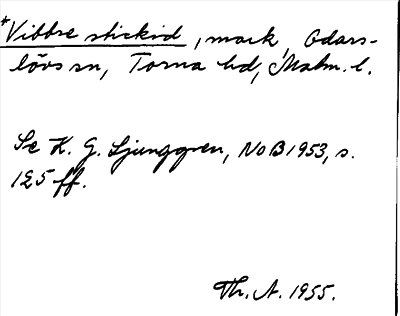 *Vibbre stickid, mark, Odars-
lövs sn, Torna hd, Malm. l.
Se K. G. Ljunggren, NoB 1953, s.
125 ff.
Th. A. 1955.